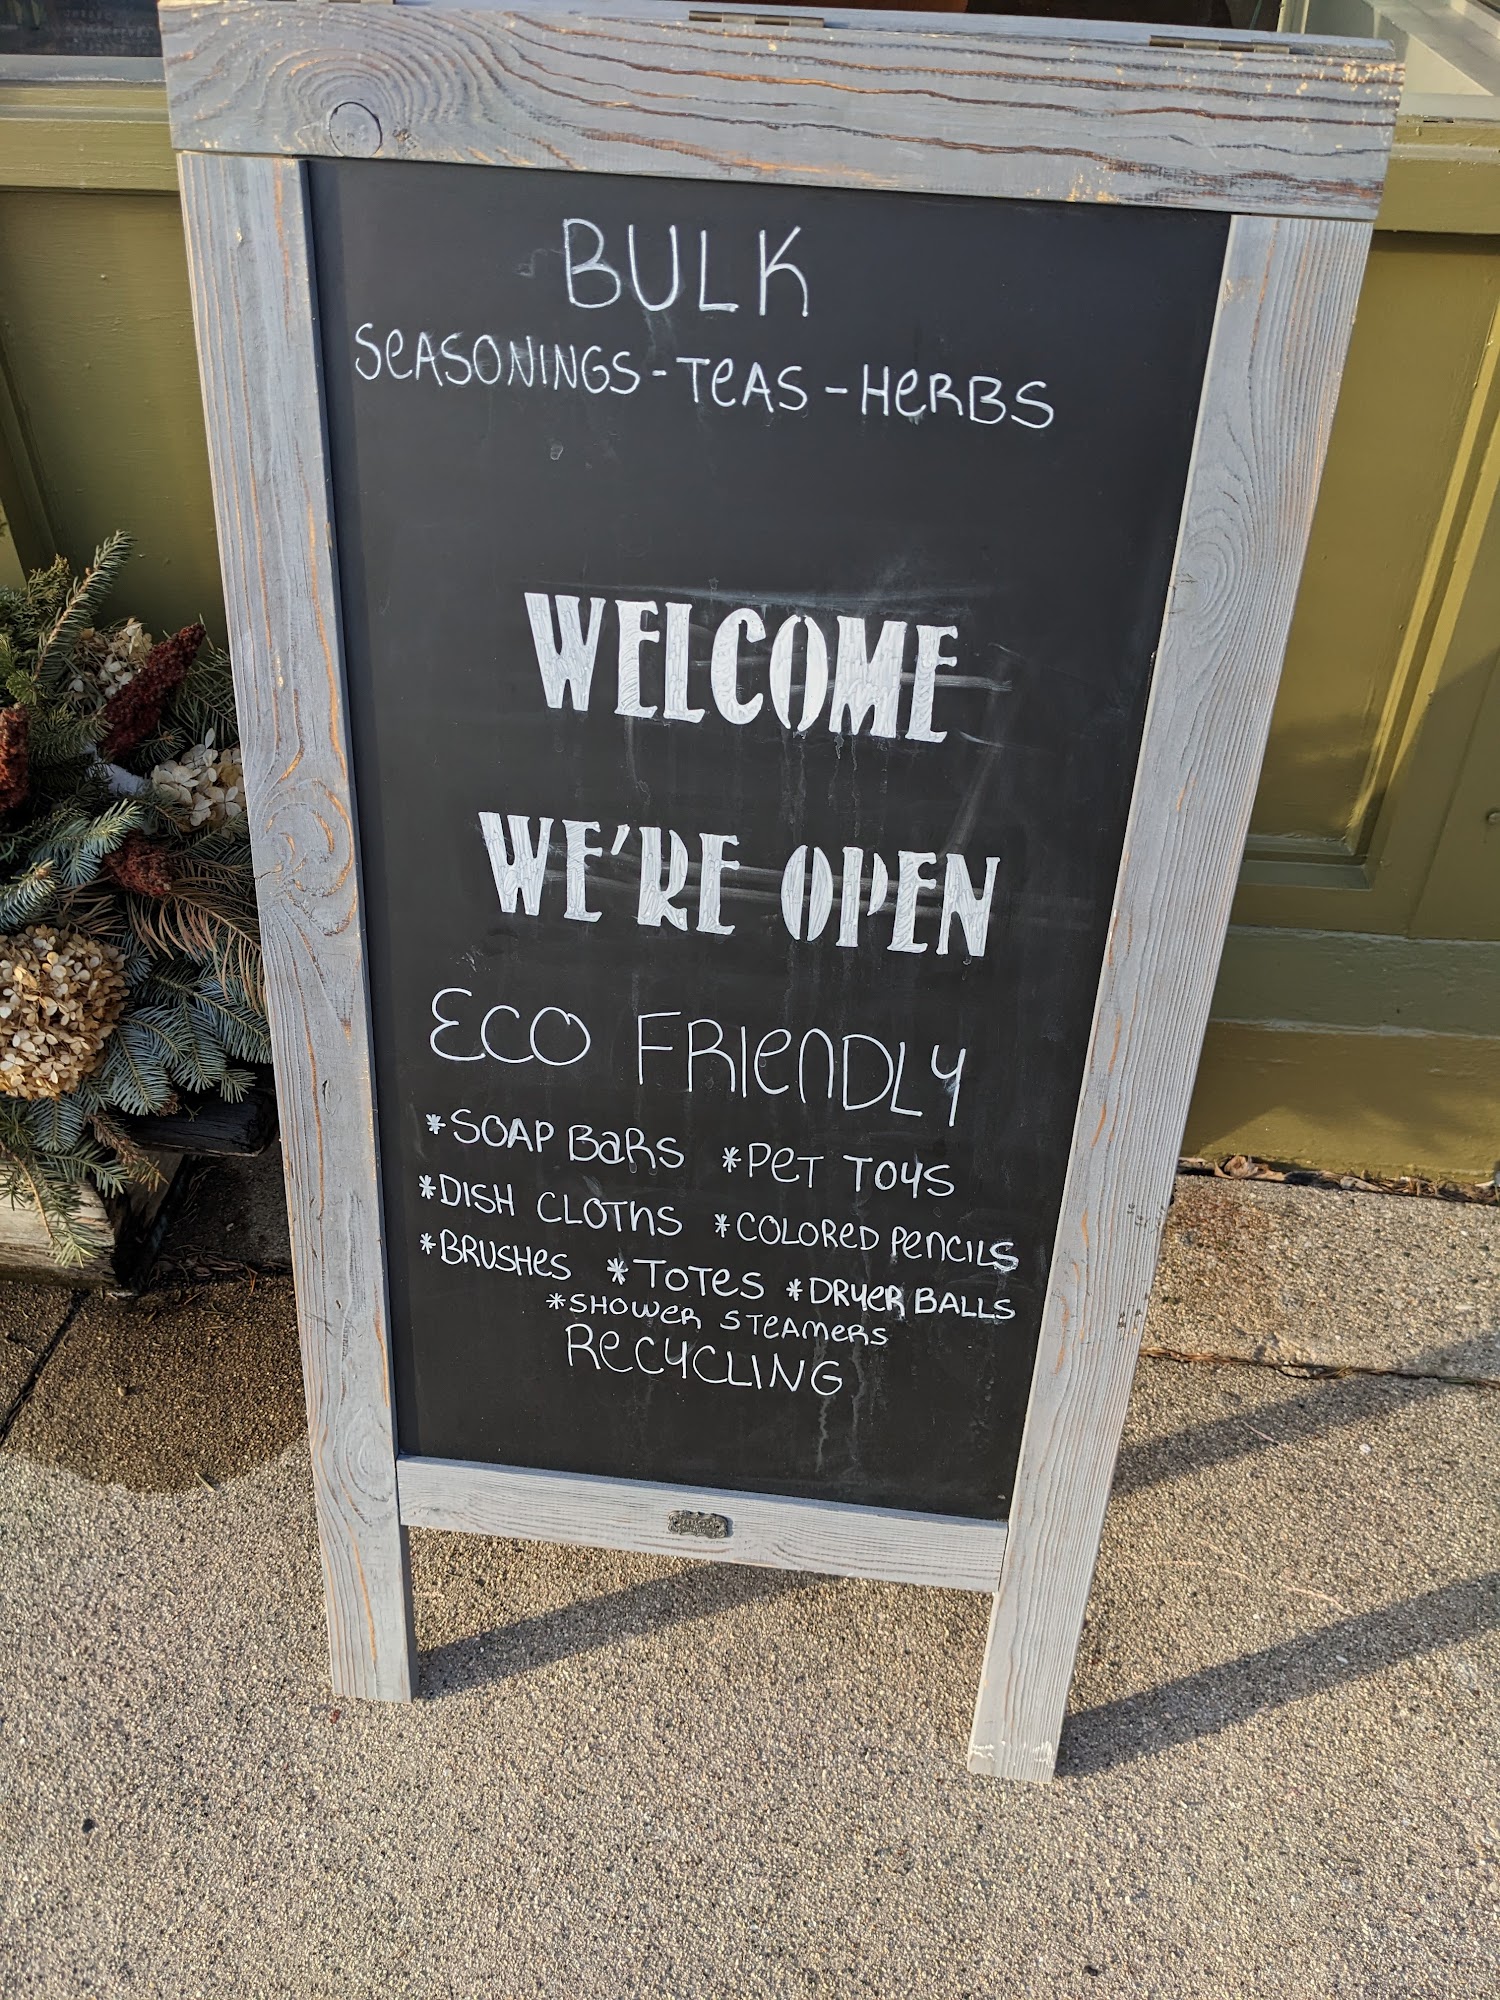 BULK
SEASONINGS - TEAS - HERBS
WELCOME
WE'RE OPEN
ECO FRIENDLY
*SOAP BARS *PET TOYS
*DISH CLOTHS *COLORED PENCILS
*BRUSHES *TOTES *DRYER BALLS
*SHOWER STEAMERS
RECYCLING